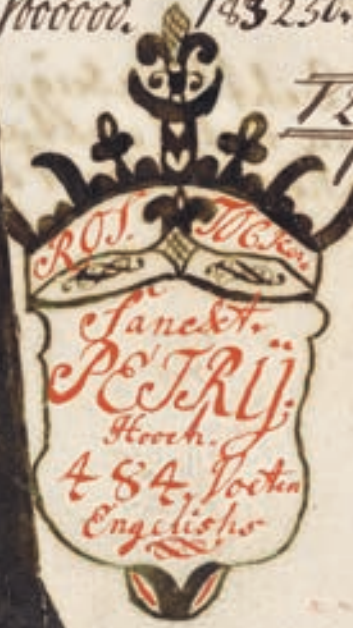 1600000. 183250.
ROS. TOCKer.
Sanckt.
PETRIJ.
Hooch.
484, Voeten
Engelishe